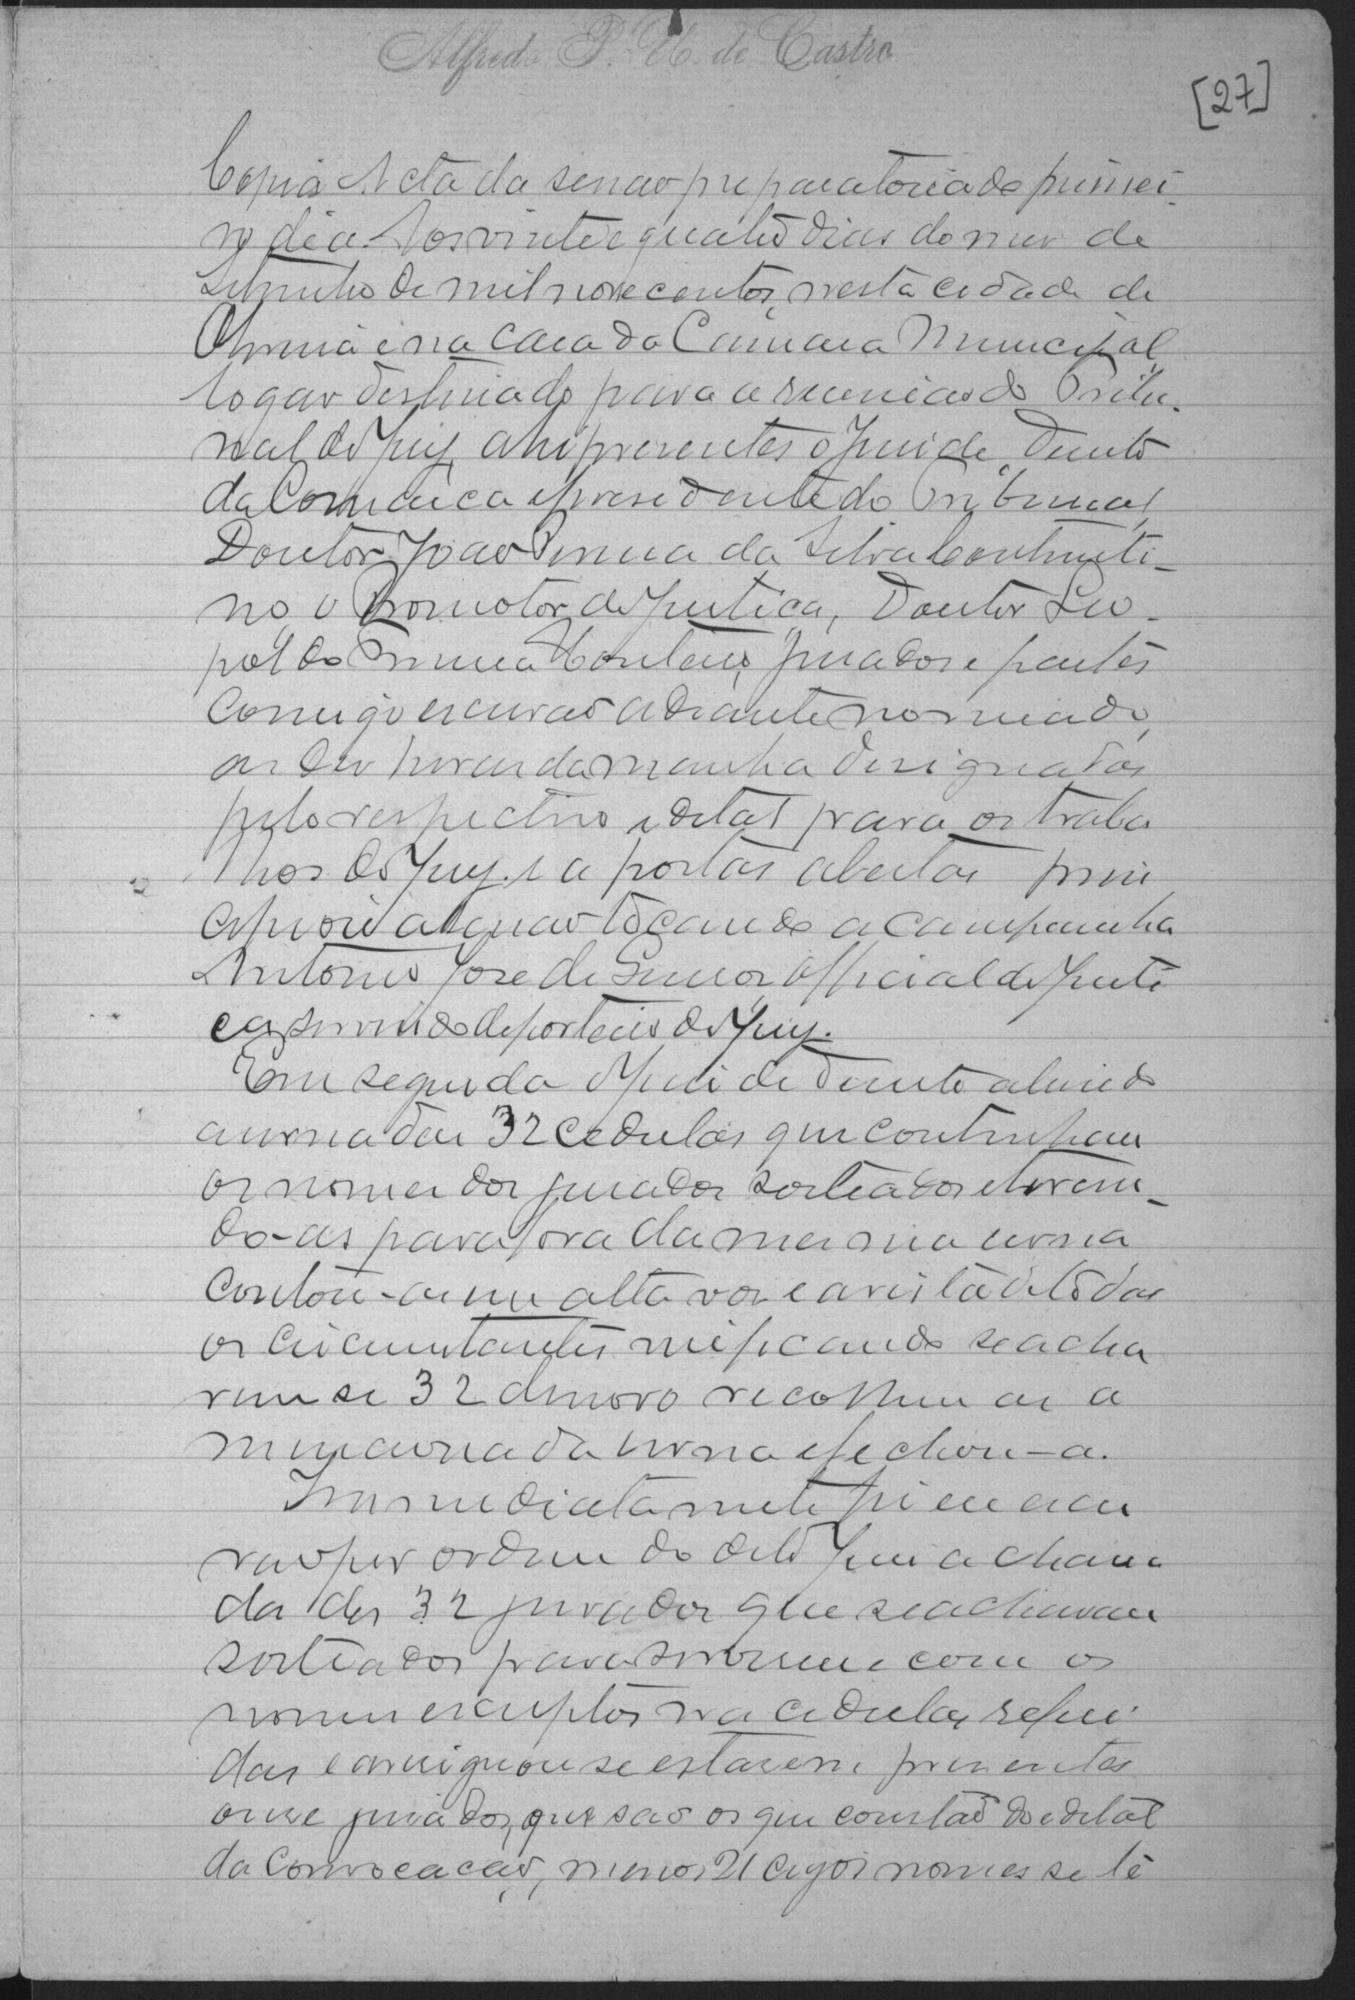 Alfredo P. U. de Castro
[27]
Copia Acta da sessão preparatoria do primei-
ro dia. Aos vinte e quatro dias do mez de
Setembro de mil novecentos, nesta cidade de
e na casa da Camara Municipal,
logar destinado para a reunião do Tribu-
nal do Jury, ahi presentes o Juiz de Direito
da Comarca e presidente do Tribunal,
Doutor João Pereira da Silva Continenti-
no, o Promotor de Justiça, Doutor Leo-
poldo Pereira Monteiro, Jurados e partes
comigo escrivão adiante nomeado,
as dez horas da manhã designadas
pelo respectivo edital para os traba
lhos do Jury, e a portas abertas prin
cipiou a sessão tocando a campainha
Antonio José de Lemos, Official de Justi
ça servindo de porteiro do Jury.
Em seguida o Juiz de Direito abrindo
a urna das 32 cedulas que continhão
os nomes dos jurados sorteados e tiran-
do-as para fora da mesma urna
contou-as em alta voz e a vista de todos
os circumstantes verificando se acha
rem se 32 de novo recolheu as a
mencionada urna e fechou-a.
Immediatamente fiz eu escri
vão por ordem do dito Juiz a chama
da dos 32 jurados que se achavam
sorteados para servirem e com os
nomes escriptos nas cedulas referi
das e averiguou se estarem presentes
onze jurados, que são os que constão do edital
da convocação, menos 21 cujos nomes se lê